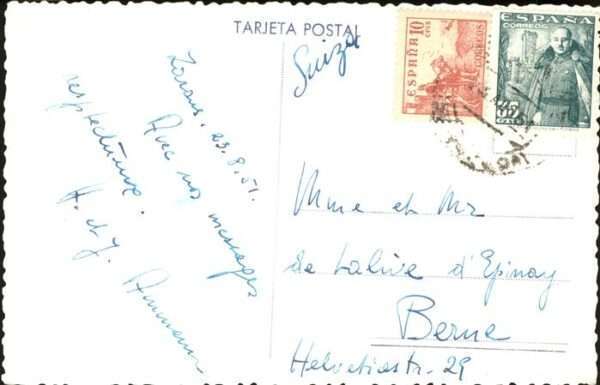 TARJETA POSTAL
Suiza
ESPAÑA 10
CTS
CORREOS
ESPAÑA
CORREOS
35
CTS
Zaraus, 23.8.51.
Avec nos messages
respectueux.
H. et J. Ammann
Mme et Mr
de Lalive d'Epinay
Berne
Helvetiastr. 29